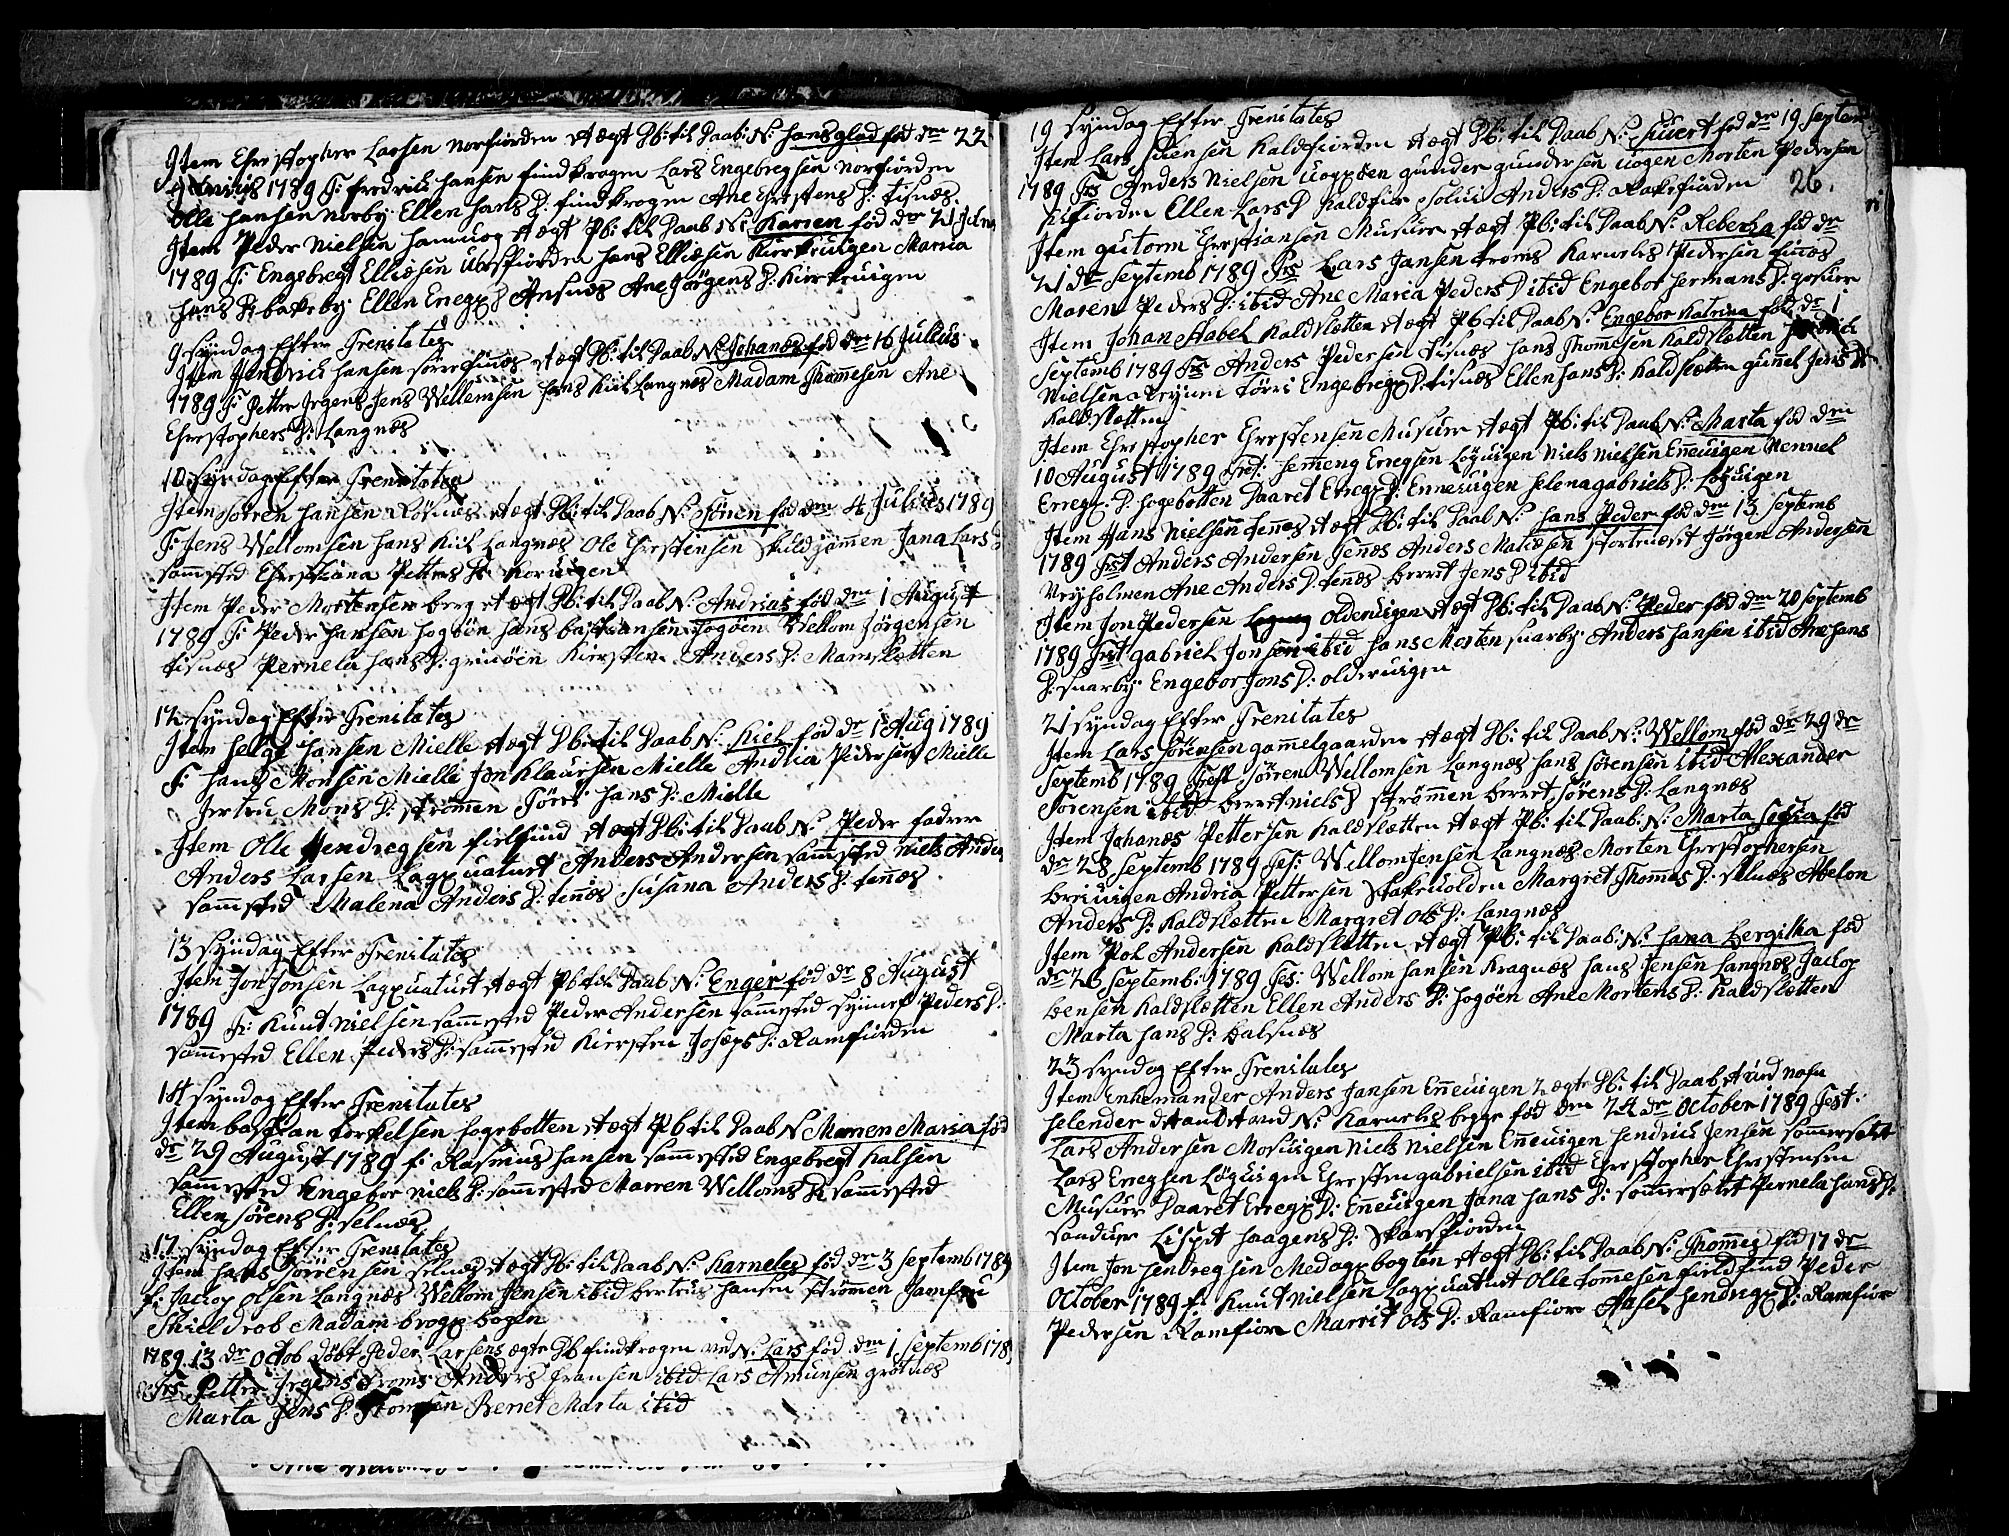 Item Chrestopher Larsen Norfiorden et ægt Pb: til Daab: N: hansglad fød den 22
1789 F: fredrik hansen findkrogen Lars Engebregsen Norfiorden
Olle hansen Norby Ellen hans D: findkrogen Ane Chrestens D: tisnæs.
Item Peder Nielsen hamuog et ægt Pb: til Daab N: Karien fød der 21
1789 F: Engebregt Elliæsen Ubsfiorden hans Elliæsen Kierkeuigen Marsia
hans D: bakeby Ellen Eregx D Ansnæs Ane Jörgens D: Kierkeuigen
9 syndag Efter Trenitates
Item Hendrich hansen sörrefinæs et ægt Pb: til Daab N: Johanæs fød den 16 Julius
1789 F: Petter Irgens Jens Wellomsen hans Kiel Langnes Madam Thommesen Ane
Chrestophers D: Langnæs
10 syndag Efter Trenitates
Item sörren hansen Röjnæs et ægt Pb: til Daab N: Sören fød den 4 Julius 1789
F: Jens Wellomsen hans Kiel Langnæs Ole Chrestensen skuldgammen Jana Lars D
sammsted Chrestiana Petters D: Koruigen
Item Peder Mortensen berg et ægt Pb: til Daab N: Andrias fød den 1 August
1789 F: Peder hansen hogöen hans bastiansen hogöen Wellom Jörgensen
tisnæs Pernela hans D: grinöien Kiersten Anders D: Marislætten
12 syndag Efter Trenitates
Item helge hansen Mielle et ægt Pb: til Daab N: Kiel fød dr 1 Aug 1789
F: hans Monsen Mielle Jon Klaursen Mielle Andria Pedersen Mielle
Jertru Mons D: strömmen Törri hans D: Mielle
Item Olle Hendregsen fielfiund et ægt Pb: til Daab N: Peder fadrer
Anders Larsen Lagxuatnet Anders Andersen sammsted niels Anders
sammsted Malena Anders D: tennæs Susana Anders D: tennæs
13 Syndag Efter Trenitates
Item Jon Jonsen Lagxuatnet et ægt Pb til Daab N: Enger fød dr 8 August
1789 F: Knud Nielsen sammested Peder Andersen sammested synnev Peders D:
sammested Ellen Peders D: sammested Kiersten Josæps D: Ramfiorden
14 syndag Efter Trenitates
Item bastian torkelsen hogebotten et ægt Pb til Daab N Marren Maria fød
dr 29 August 1789 f: Rasmus hansen sammested Engebregt Kalsen
sammested Engebor niels D: sammested Marren Welloms D: sammested
Ellen sörens D: selnæs
17 syndag Efter Trenitates
Item hans sörrensen selnæs et ægt Pb: til Daab N: Karneles fød der 3 septemb 1789
f: Jacop olsen Langnæs Wellom Jensen ibid berteus hansen strömen Jomfru
Skieldrob Madam brogx bogen
1789 13 dr Octob döbt Peder Larsens ægte Pb findkrogen ved N: Lars fød den 1 septemb 178
Frs Petter Irgens Troms Anders fransen ibid Lars Amunsen grötnæs
Marta Jens D: Tromsen Berret Marta ibid
19 Syndag Efter Trenitates
Item Lars siuensen Kaldfiorden et ægt Pb: til Daab N: Siuert fød dr 19 Septem
1789 Frs Anders Nielsen uogxöen gunder gundersen uogen Morten Pedersen
Eifiorden Ellen Lars D Kaldfior Soluei Anders D: Rakefiorden 26.
Item gutorm Chrestiansen Musuer et ægt Pb: til Daab N: Rebecka fød dr
21 dr septemb 1789 Frs Lars Jansen troms Karneles Pedersen finæs
Maren Peders D: ibid Ane Maria Peders D ibid Engebor hermans D: gosuer
Item Johan Stabel Kaldslætten et ægt Pb: til Daab N: Engebor Katrina fød dr 1
Septemb 1789 Frs Anders Pedersen tisnæs hans Thommesen Kaldslætten
Nielsen Törri Engebregx D: tisnæs Ellen hans D: Kaldslætten gunnel Jens D
Kaldsletten
Item Chrestopher Chrestensen Musuer et ægt Pb: til Daab N: Marta fød den
10 August 1789 Fret: hemmeng Erregsen Löguigen Niels Nielsen Enneuigen Nennel
Erregx D: hogebotten Daaret Erregx D: Enneuigen helena gabriels D: Löguigen
Item Hans Nielsen tennæs et ægt Pb: til Daab N: hans Peder fød den 13 Septemb
1789 Frst Anders Andersen tennæs Anders Matiæsen stortenæset Jörgen Andersen
Ureyholmen Ane Anders D: tennæs berret Jens D ibid
Item Jon Pedersen olderuigen et ægt Pb: til Daab N: Peder fød den 20 septemb
1789 Frst gabriel Jonsen ibid hans Morten suarby Anders hansen ibid Ane hans
D: suarby Engebor Jons D: olderuigen
21 syndag Efter Trenitates
Item Lars Sörensen gammelgaarden et ægt Pb: til Daab N: Wellom fød dr 29 dr
Septemb 1789 Frest Sörren Wellomsen Langnæs hans sörensen ibid Alexander
Sörensen ibid berret niels D strömmen berret Sörens D: Langnæs
Item Johanæs Pettersen Kaldslætten et ægt Pb: til Daab: N: Marta Sofia fød
dr 28 Septemb 1789 Fes: Wellom Jensen Langnæs Morten Chrestophersen
breiuigen Andria Pettersen Stakeuolden Margret Thommes D: selnæs Abelon
Anders D: Kaldslætten Margret Ols D: Langnæs
Item Pol Andersen Kaldslætten et ægt Pb: til Daab: N: hana bergitha fød
dr 26 Septemb: 1789 Fes: Wellom hansen Kragnæs hans Jensen Langnæs Jacop
bensen Kaldslætten Ellen Anders D: hogöen Ane Mortens D: Kaldslætten
Marta hans D: balsnæs
23 syndag Efter Trenitates
Item Enkemander Anders Jansen Enneuigen 2 ægte Pb: til Daab et ued nafn
helender det andet ued N: Karneles begge fød den 24 dr October 1789 Fest:
Lars Andersen Mosuigen Niels Nielsen Enneuigen hendrich Jensen sommersætet
Lars Erregsen Löguigen Chresten gabrielsen ibid Chrestopher Chrestensen
Musuer Daaret Erregx D: Enneuigen Jana hans D: sommersætet Pernela hans D:
sanduer Lispet haagens D: Skarsfiorden
Item Jon hendregsen Medagxbogten et ægt Pb: til Daab N: Thommes fød 17 dr
October 1789 f: Knut Nielsen Lagxuatnet Olle tommesen fieldfiund Peder
Pedersen Ramfior Marrit Ols D: Ramfior Aasel hendregx D: Ramfior